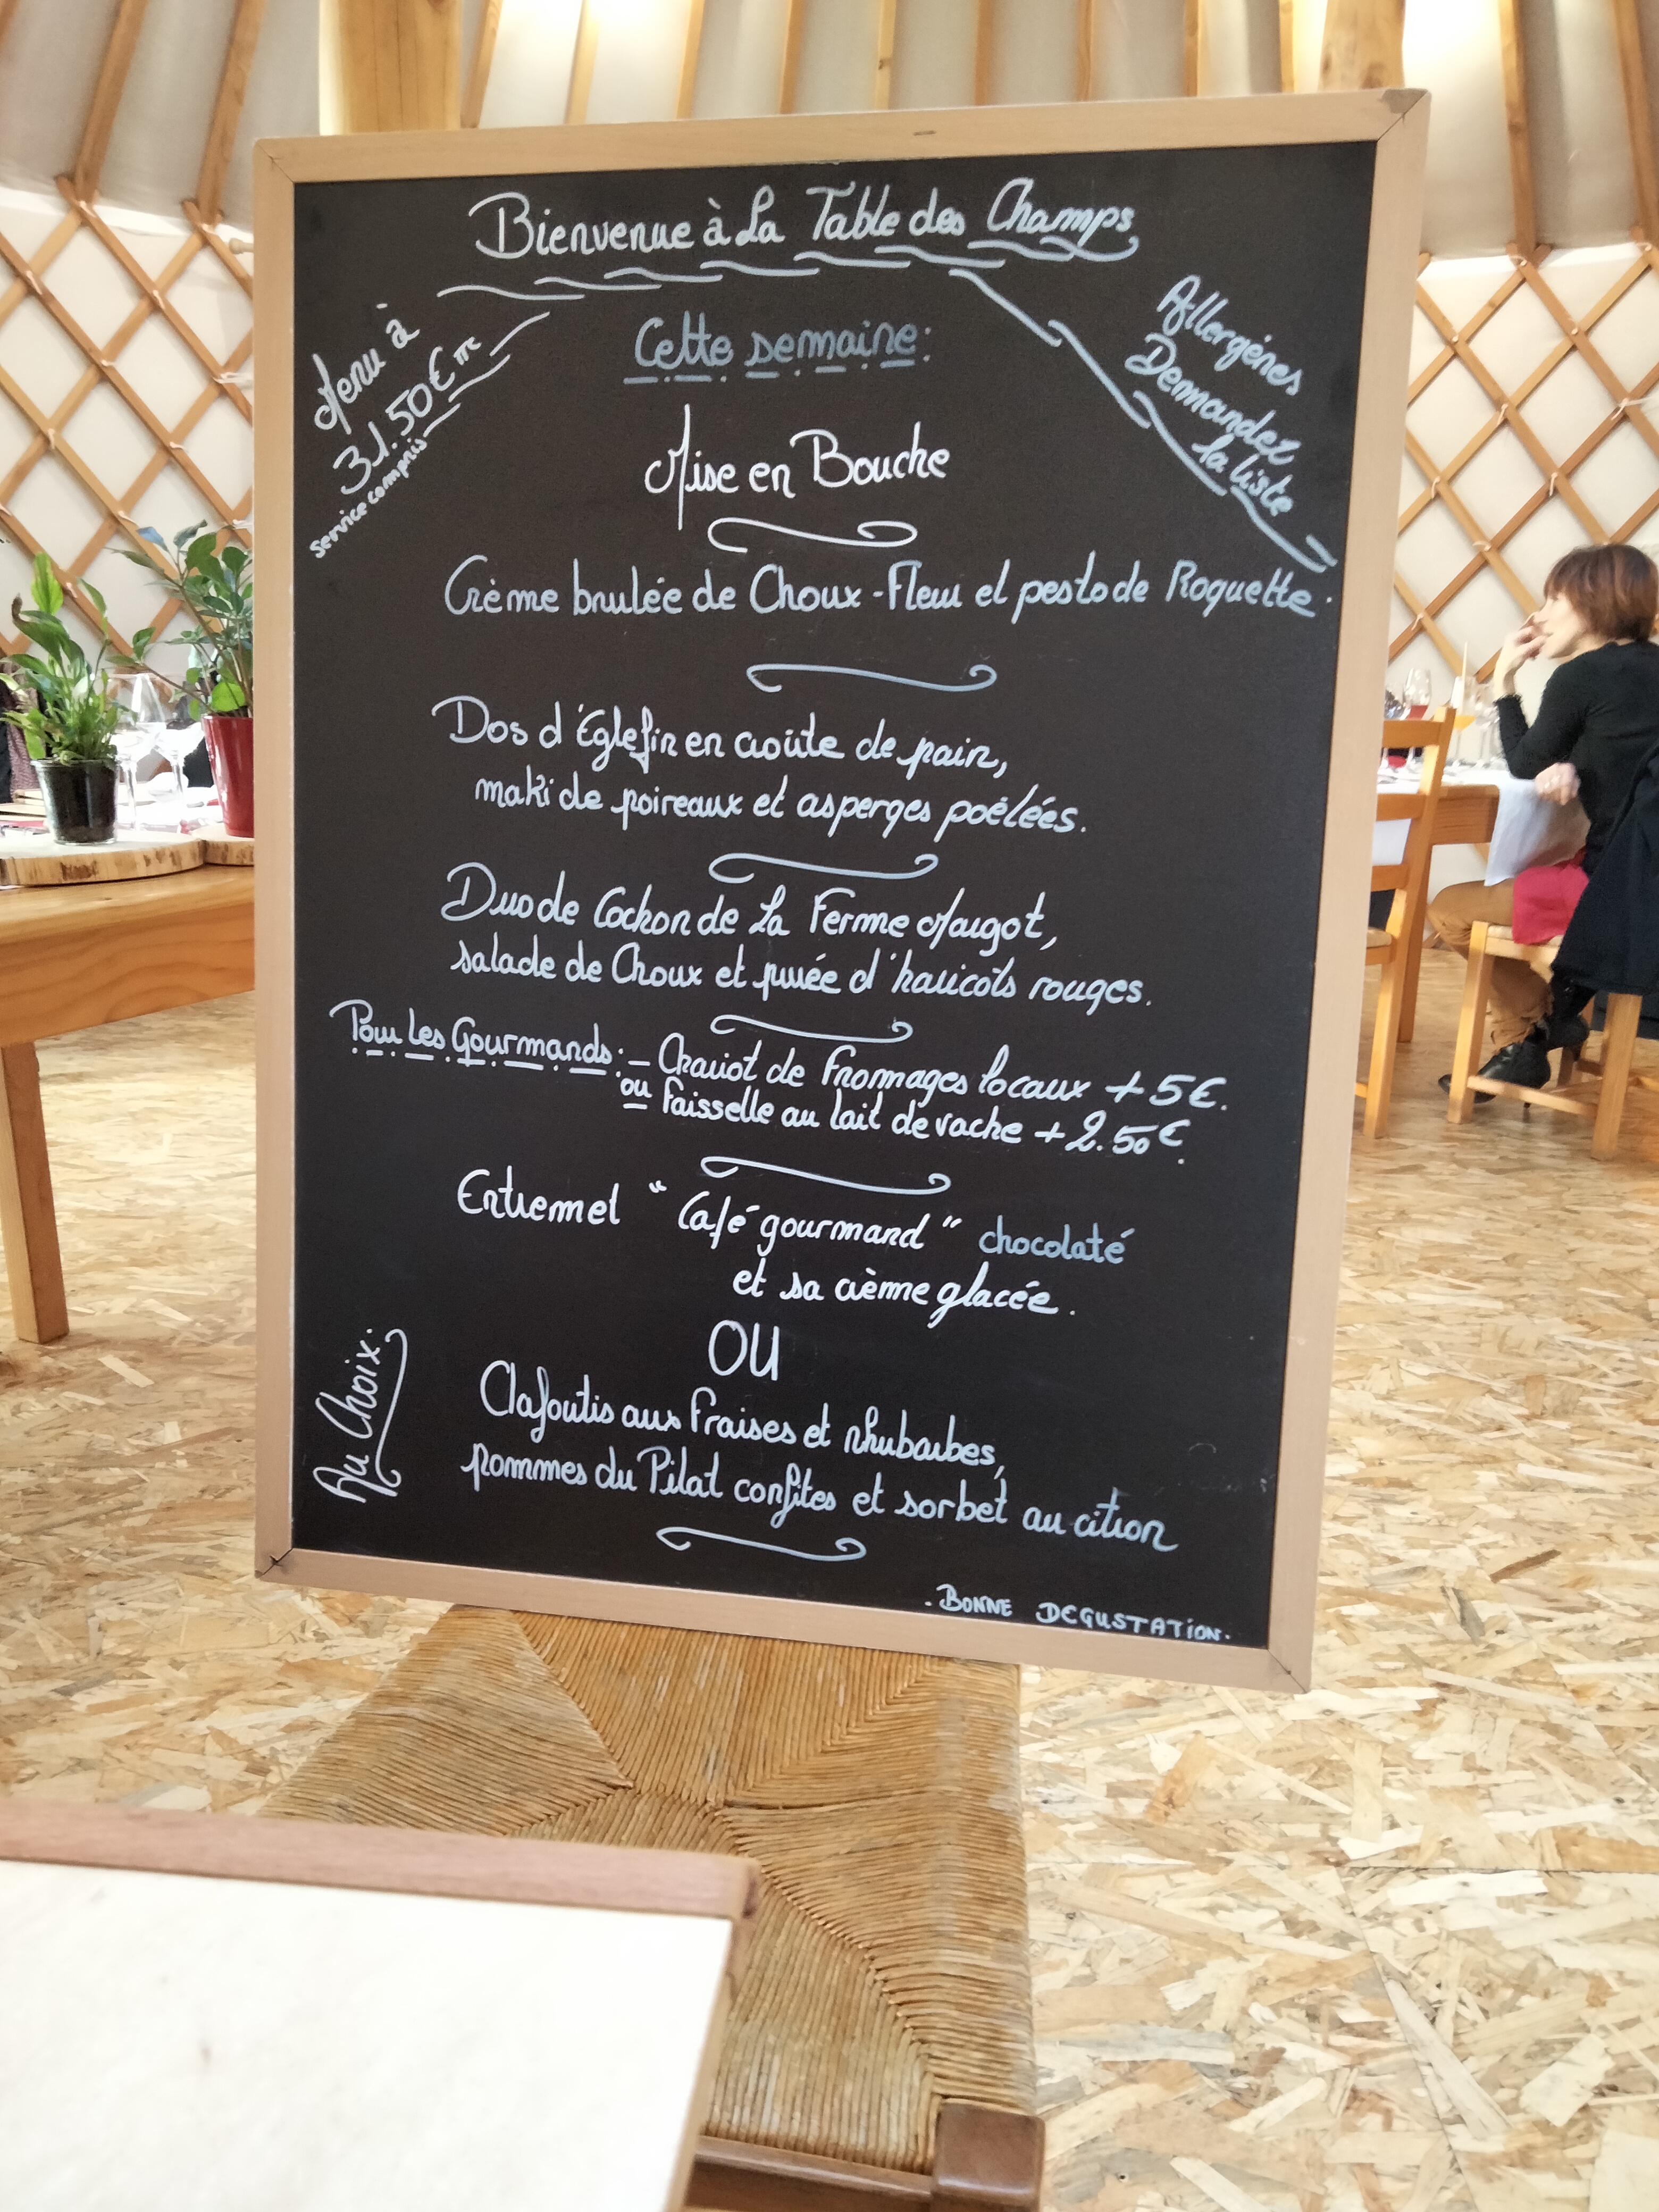 Bienvenue à La Table des Champs
Menu à
31.50€ TTC
service compris
Allergénes
Demandez
la liste
Cette semaine:
Mise en Bouche
Crème brulée de Choux-Fleur et pesto de Roquette.
Dos d'Églefin en croûte de pain,
maki de poireaux et asperges poëlées.
Duo de Cochon de La Ferme Margot,
salade de Choux et purée d'haricots rouges.
Pour Les Gourmands: - Chariot de Fromages locaux + 5€.
ou faisselle au lait de vache + 2.50€.
Entremet "Café gourmand" chocolaté
et sa crème glacée.
OU
Au Choix.
Clafoutis aux fraises et rhubarbes,
pommes du Pilat confites et sorbet au citron
- BONNE DEGUSTATION.